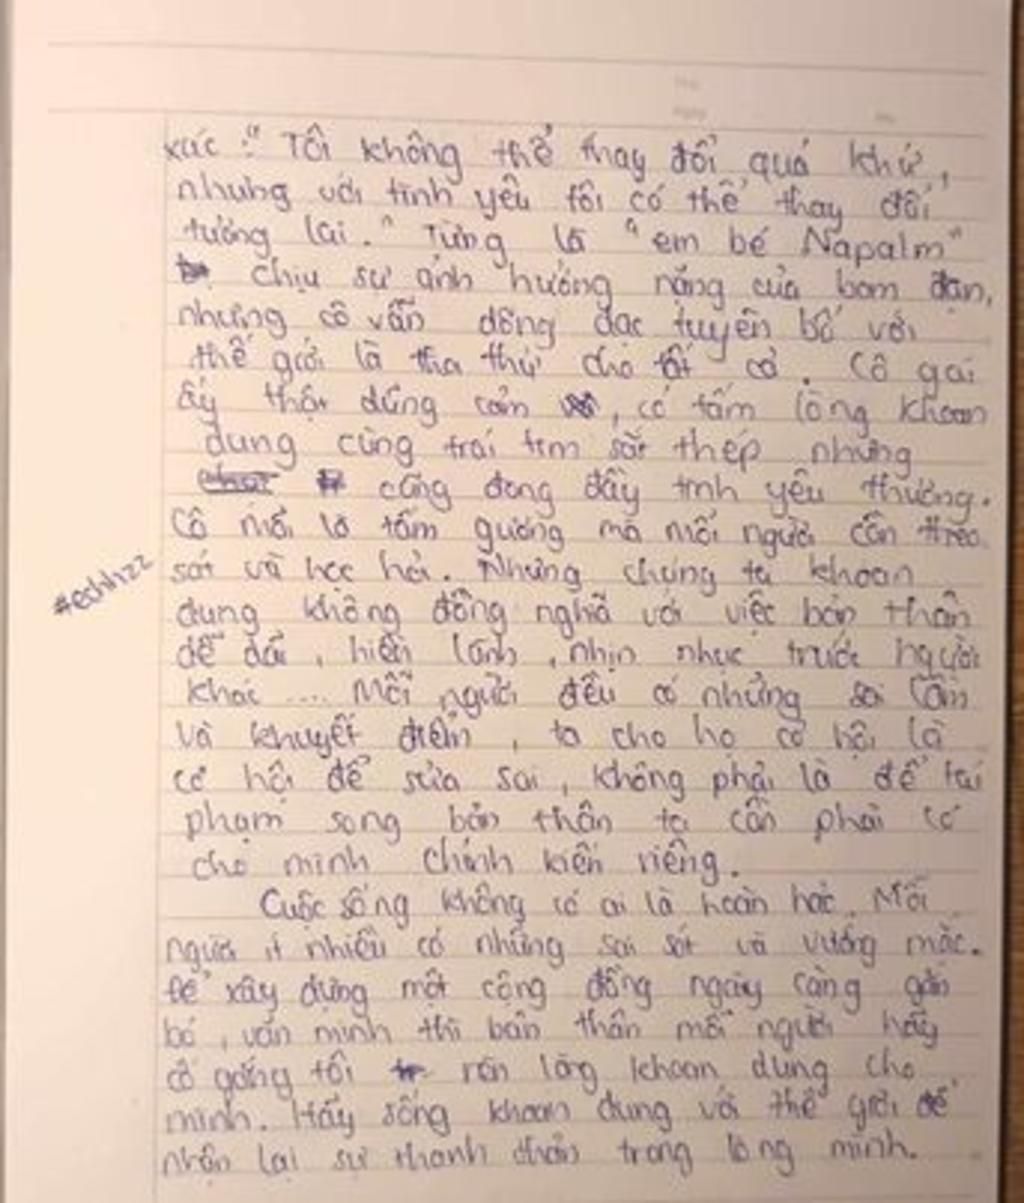 xúc : "Tôi không thể thay đổi quá khứ,
nhưng với tình yêu tôi có thể thay đổi
tương lai." Từng là "em bé Napalm"
chịu sự ảnh hưởng nặng của bom đạn,
nhưng cô vẫn dõng dạc tuyên bố với
thế giới là tha thứ cho tất cả. Cô gái
ấy thật dũng cảm, có tấm lòng khoan
dung cùng trái tim sắt thép nhưng
cũng đong đầy tình yêu thương.
Cô mãi là tấm gương mà mỗi người cần theo
sát và học hỏi. Nhưng chúng ta khoan
dung không đồng nghĩa với việc bản thân
dễ dãi, hiền lành, nhịn nhục trước người
khác .... Mỗi người đều có những sai lầm
và khuyết điểm, ta cho họ cơ hội là
cơ hội để sửa sai, không phải là để tái
phạm song bản thân ta cần phải có
cho mình chính kiến riêng.
#echh22
Cuộc sống không có ai là hoàn hảo. Mỗi
người ít nhiều có những sai sót và vướng mắc.
Để xây dựng một cộng đồng ngày càng gắn
bó, văn minh thì bản thân mỗi người hãy
cố gắng tôi rèn lòng khoan dung cho
mình. Hãy sống khoan dung với thế giới để
nhận lại sự thanh thản trong lòng mình.